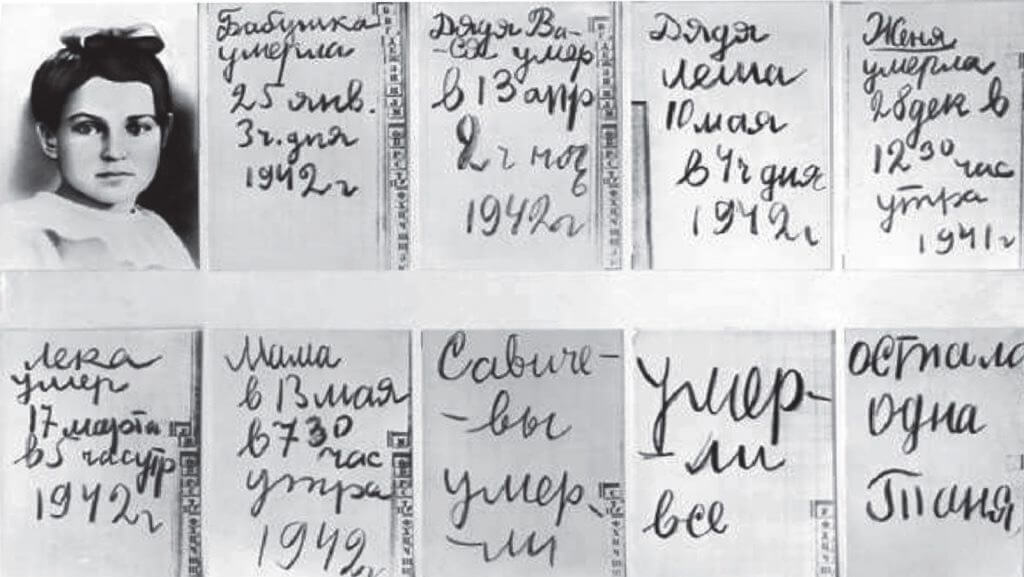 Бабушка
умерла
25 янв.
3 ч. дня
1942 г
Дядя Ва-
-ся умер
в 13 апр
2 ч ноч
в
1942 г
Дядя
Леша
10 мая
в 4 ч дня
1942 г
Женя
умерла
28 дек в
12 30 час
утра
1941 г
Лека
умер
17 марта
в 5 час утр
1942 г
Мама
в 13 мая
в 7 30
час
утра
1942
Савиче-
-вы
умер
-ли
Умер-
-ли
все
остала
одна
Таня